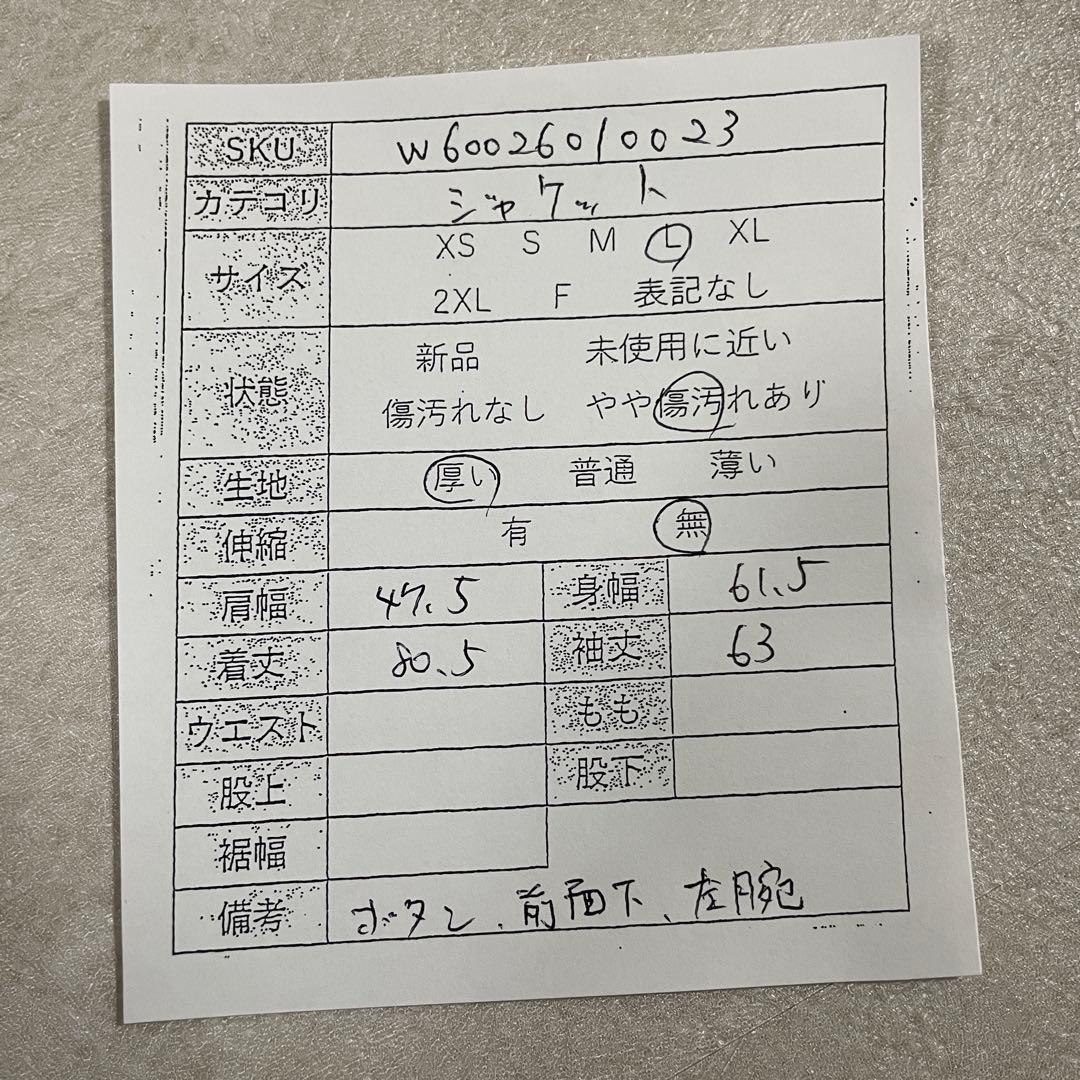 SKU W60026010023
カテゴリ ジャケット
サイズ XS S M L XL
2XL F 表記なし
状態 新品 未使用に近い
傷汚れなし やや傷汚れあり
生地 厚い 普通 薄い
伸縮 有 無
肩幅 47.5 身幅 61.5
着丈 80.5 袖丈 63
ウエスト もも
股上 股下
裾幅
備考 ボタン、前面下、左腕